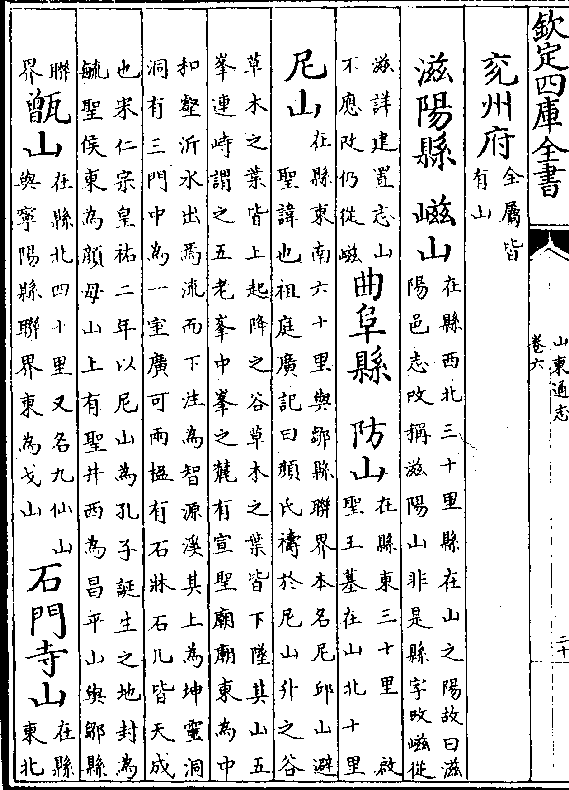 欽定四庫全書
山東通志
卷六
二十
兖州府
全屬皆
有山
滋陽縣 嵫山
在縣西北三十里縣在山之陽故曰滋
陽邑志改稱滋陽山非是縣字改嵫從
滋詳建置志山
不應改仍從嵫
曲阜縣 防山
在縣東三十里 啟
聖王墓在山北十里
尼山
在縣東南六十里與鄒縣聯界本名尼邱山避
聖諱也祖庭廣記曰顔氏禱於尼山升之谷
草木之葉皆上起降之谷草木之葉皆下墜其山五
峯連峙謂之五老峯中峯之麓有宣聖廟廟東為中
和壑沂水出焉流而下注為智源溪其上為坤靈洞
洞有三門中為一室廣可兩楹有石牀石几皆天成
也宋仁宗皇祐二年以尼山為孔子誕生之地封為
毓聖侯東為顔母山上有聖井西為昌平山與鄒縣
聯
界
甑山
在縣北四十里又名九仙山
與寧陽縣聯界東為戈山
石門寺山
在縣
東北